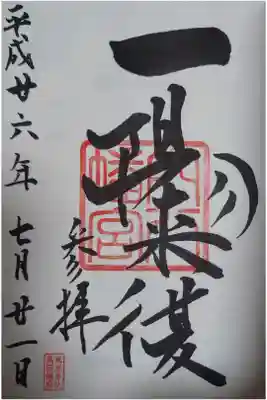 一陽来復
参拝
平成廿六年 七月廿一日